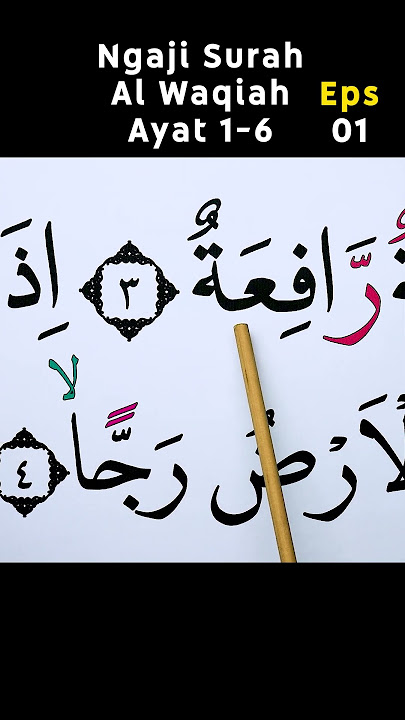 Ngaji Surah
Al Waqiah Eps
Ayat 1-6 01
رَّافِعَةٌ ٣ اِذَ
لا
لْاَرْضُ رَجًّا ٤